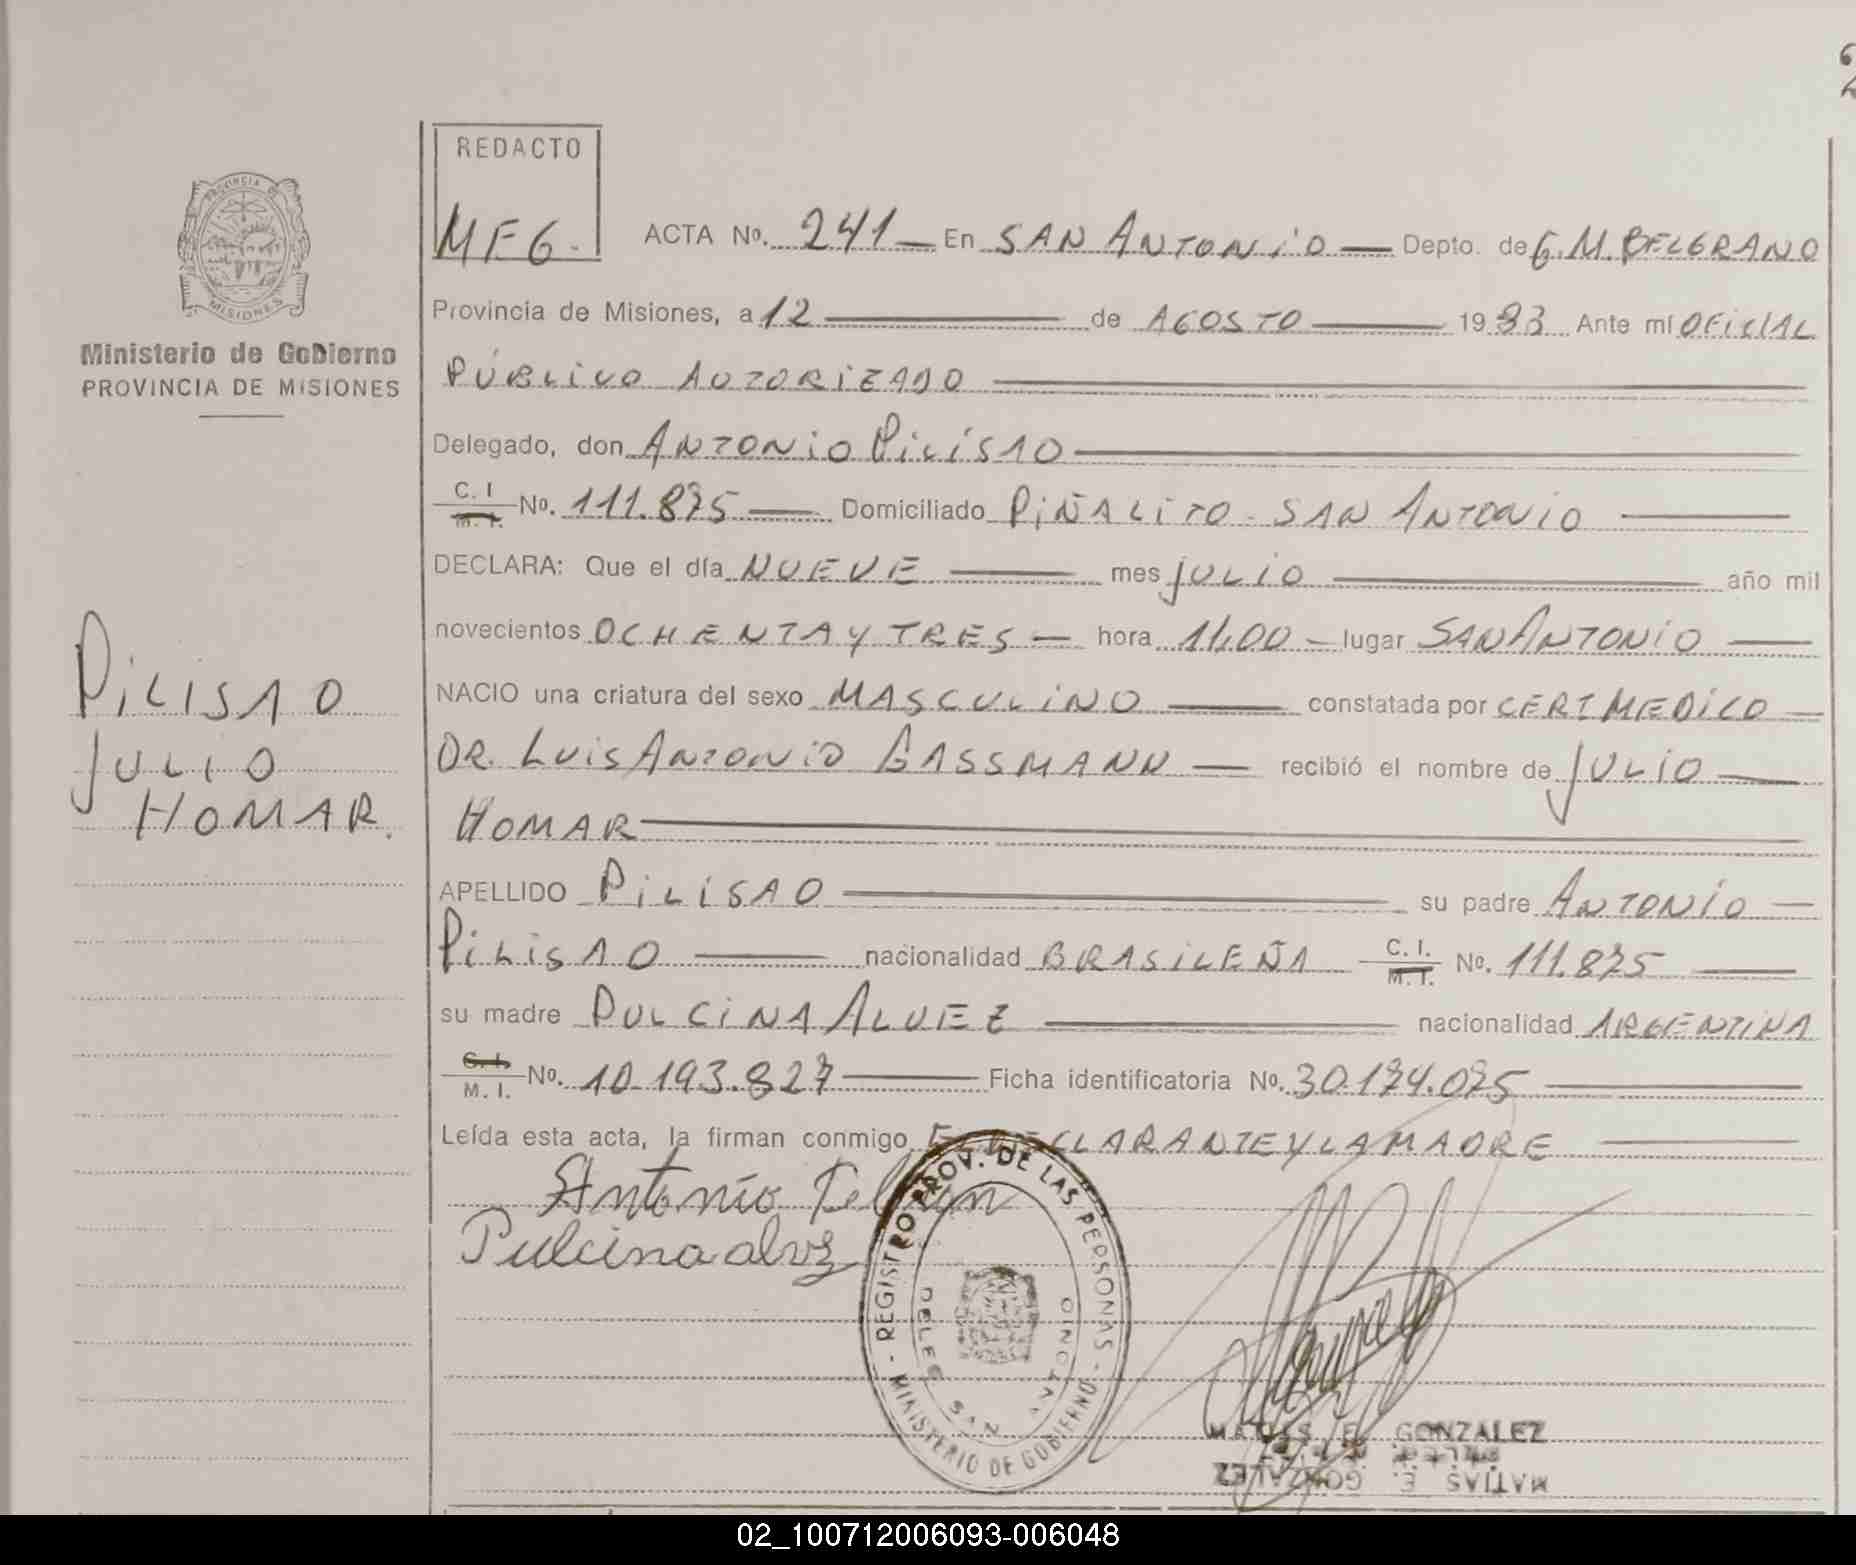 2
REDACTO
MFG.
PROVINCIA DE
MISIONES
Ministerio de Gobierno
PROVINCIA DE MISIONES
ACTA No. 241 En SAN ANTONIO Depto. de G.M. BELGRANO
Provincia de Misiones, a 12 de AGOSTO 1983 Ante mí OFICIAL
PÚBLICO AUTORIZADO
Delegado, don ANTONIO PILISAO
C. I. M. I. No. 111.875 Domiciliado PIÑALITO - SAN ANTONIO
DECLARA: Que el día NUEVE mes JULIO año mil
novecientos OCHENTA Y TRES hora 11,00 lugar SAN ANTONIO
PILISAO
JULIO
HOMAR.
NACIO una criatura del sexo MASCULINO constatada por CERT MEDICO
DR. LUIS ANTONIO GASSMANN recibió el nombre de JULIO
HOMAR
APELLIDO PILISAO su padre ANTONIO
PILISAO nacionalidad BRASILEÑA C. I. M. I. No. 111.875
su madre PULCINA ALVEZ nacionalidad ARGENTINA
C. I. M. I. No. 10.193.827 Ficha identificatoria No. 30.174.075
Leída esta acta, la firman conmigo EL DECLARANTE Y LA MADRE
Antonio
Pulcina alvz
- REGISTRO PROV. DE LAS PERSONAS -
MINISTERIO DE GOBIERNO
DELEG SAN ANTONIO
MATIAS E. GONZALEZ
MATIAS E. GONZALEZ
02_100712006093-006048